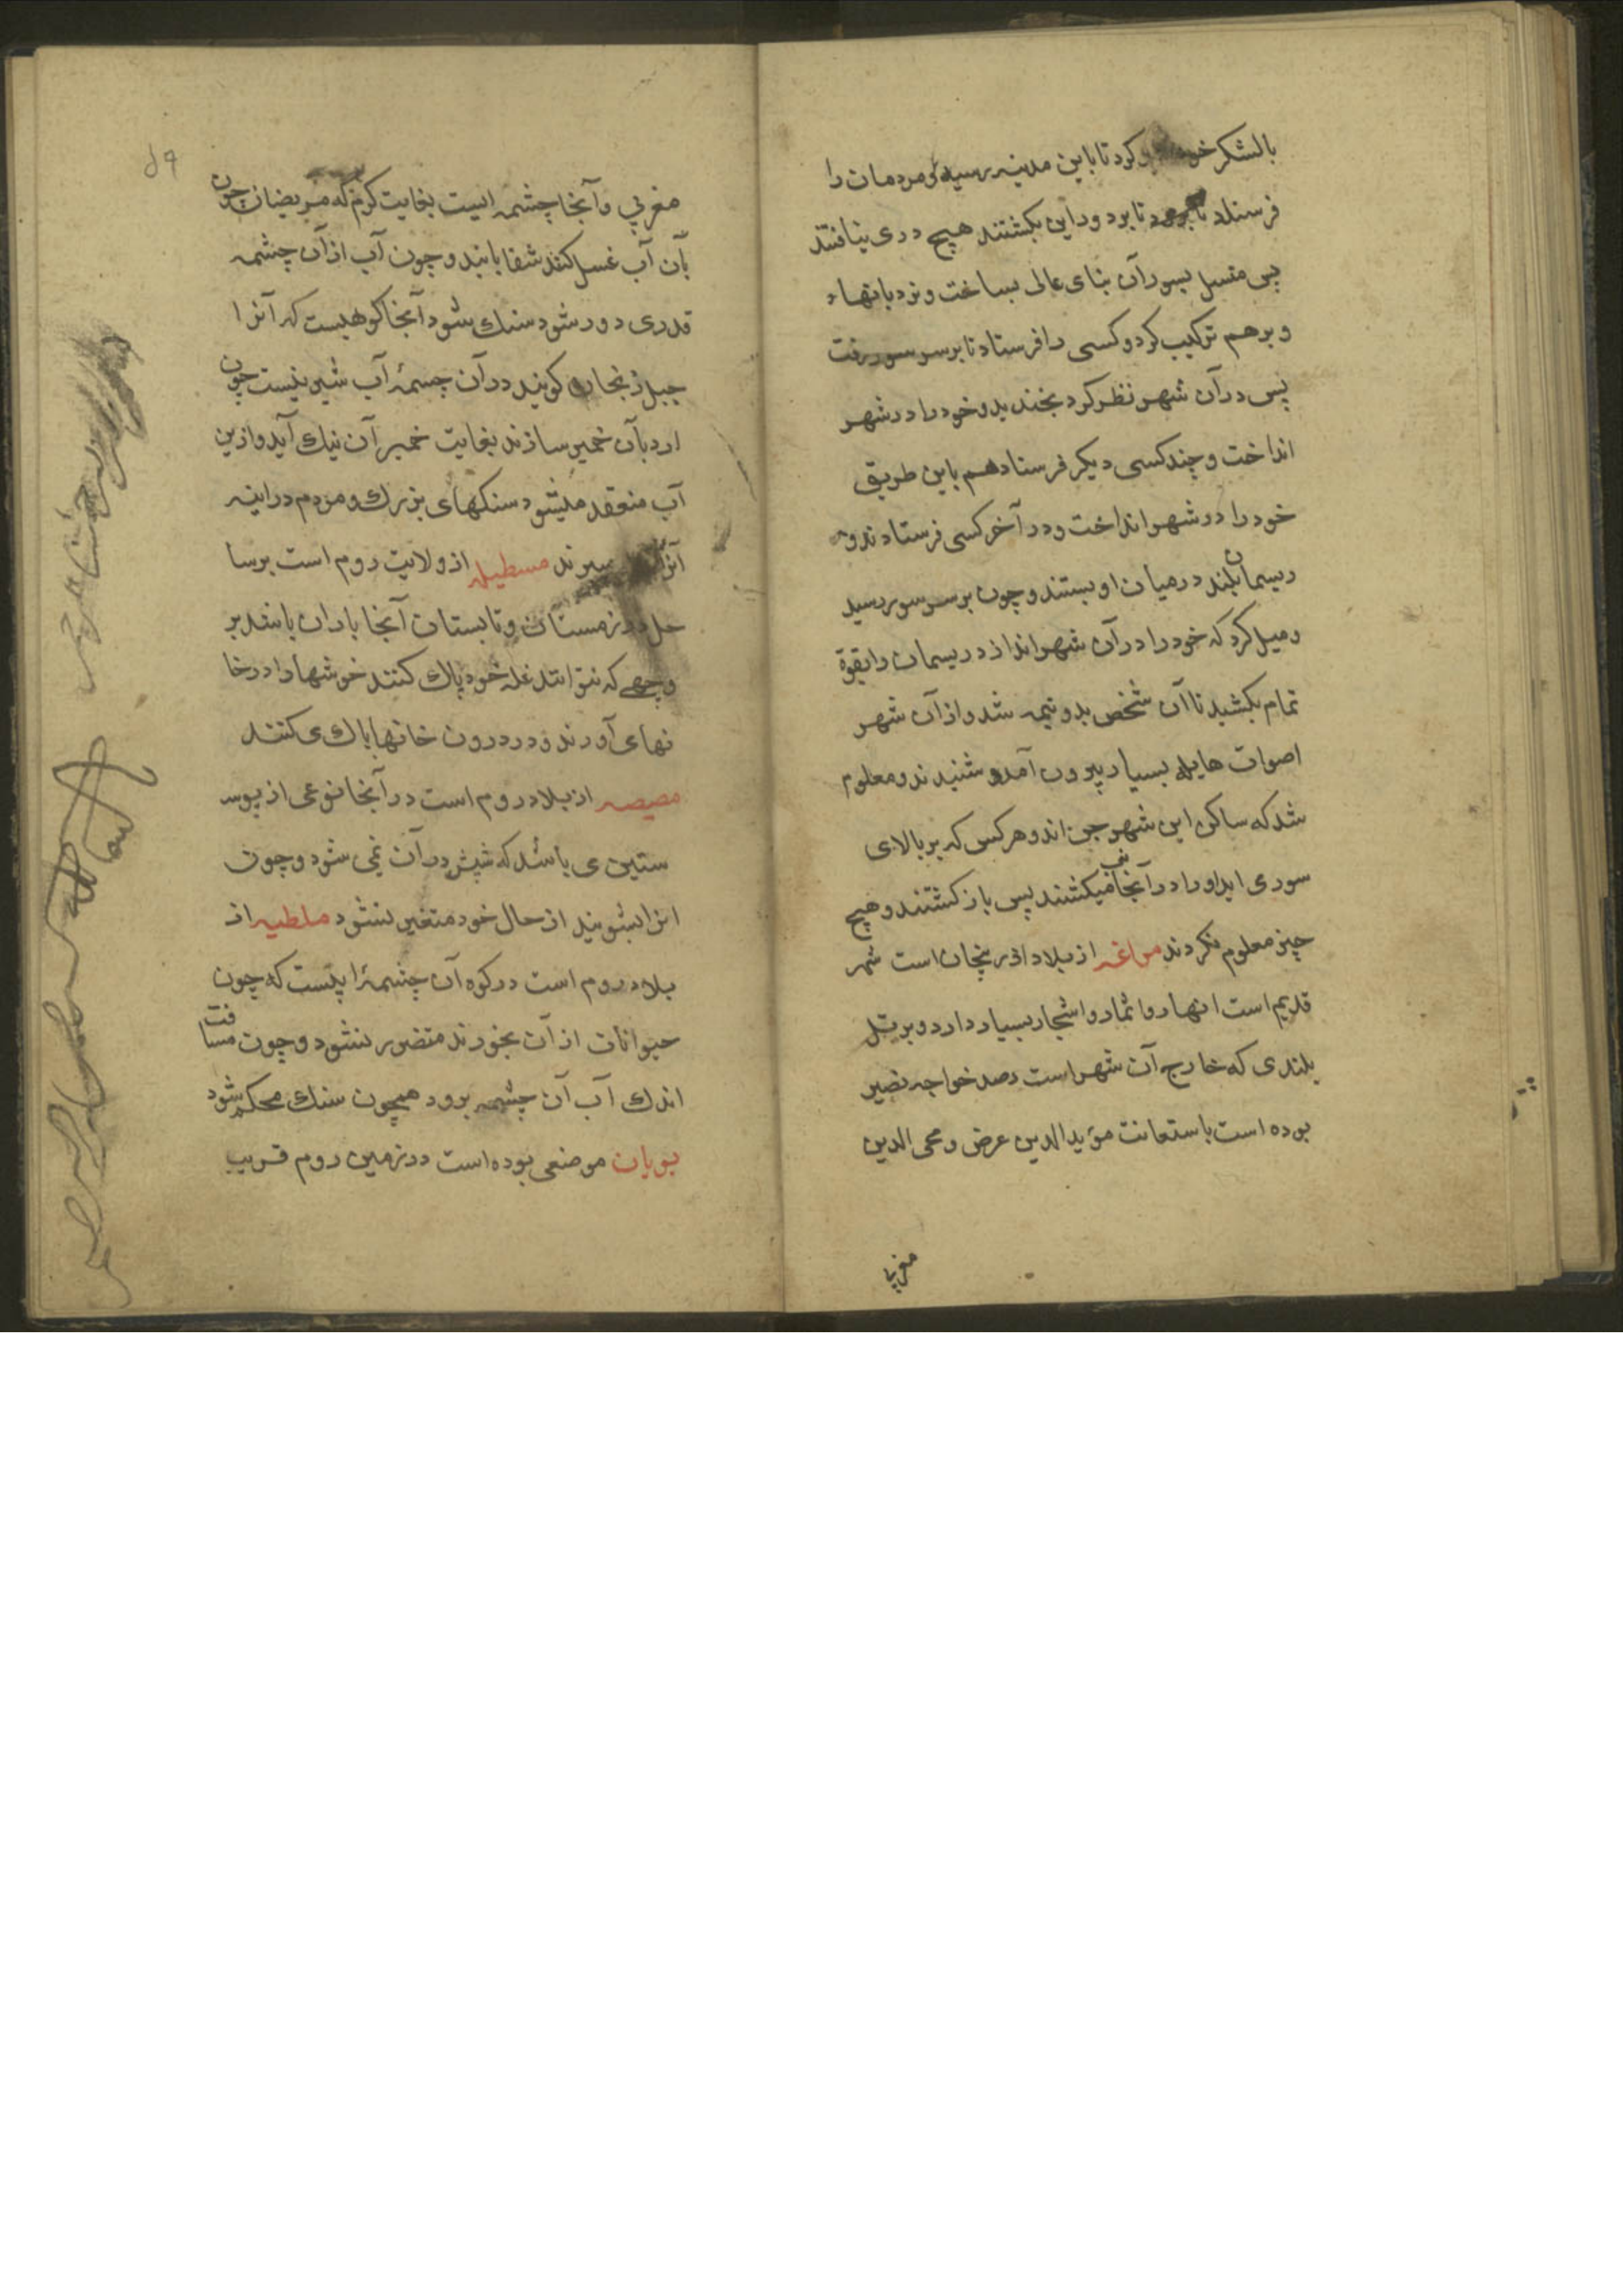 بالشکر خود کرد تا باین مدینه رسید و مردمان را
فرستاد تا برود تا بر دور این بکشتند هیچ دری نیافتند
پس متصل بسور آن بنای عالی بساخت و نردبانها
و برهم ترکیب کرد و کسی را فرستاد تا برسر سور رفت
پس در آن شهر نظر کرد بخندید و خود را در شهر
انداخت و چند کسی دیکر فرستاد هم باین طریق
خود را در شهر انداخت و در آخر کسی فرستادند و
ریسمان بلند در میان او بستند و چون بر سر سور رسید
و میل کرد که خود را در آن شهر اندازد ریسمان را بقوة
تمام بکشید تا آن شخص بدو نیمه شد و از آن شهر
اصوات هایله بسیار بیرون آمد و شنیدند و معلوم
شد که ساکن این شهر جن اند و هرکس که بر بالای
سور می اید او را در آنجا میکشند پس باز کشتند و هیچ
چیز معلوم نکردند مراغه از بلاد اذربیجان است شهر
قدیم است انهار و اثمار و اشجار بسیار دارد و بر تل
بلندی که خارج آن شهر است رصد خواجه نصیر
بوده است باستعانت مؤید الدین عرض و محی الدین
مغربی
۵۹
مغربی و آنجا چشمه ایست بغایت کرم که مریضان چون
بآن آب غسل کنند شفا یابند و چون آب از آن چشمه
قدری دور شود سنک شود آنجا کوهیست که آنرا
جبل زنجان کویند در آن چسمۀ آب شیرینست چون
ارد بآن خمیر سازند بغایت خمیر آن نیک آید و ازین
آب منعقد میشود سنکهای بزرک و مردم در ابنیه
آنرا میبرند مسطیله از ولایت روم است بر سا
حل در زمستان و تابستان آنجا باران باشد بر
وجهی که نتوانند غله خود پاک کنند خوشها را در خا
نهای آورند و در درون خانها پاک می کنند
مصیصه از بلاد روم است در آنجا نوعی از پوس
ستین می باشد که شپش در آن نمی شود و چون
انرا بشویند از حال خود متغیر نشود ملطیه از
بلاد روم است در کوه آن چشمۀ ایست که چون
حیوانات از آن بخورند متضرر نشود و چون مسافت
اندک آب آن چشمه برود همچون سنک محکم شود
بویان موضعی بوده است در زمین روم قریب